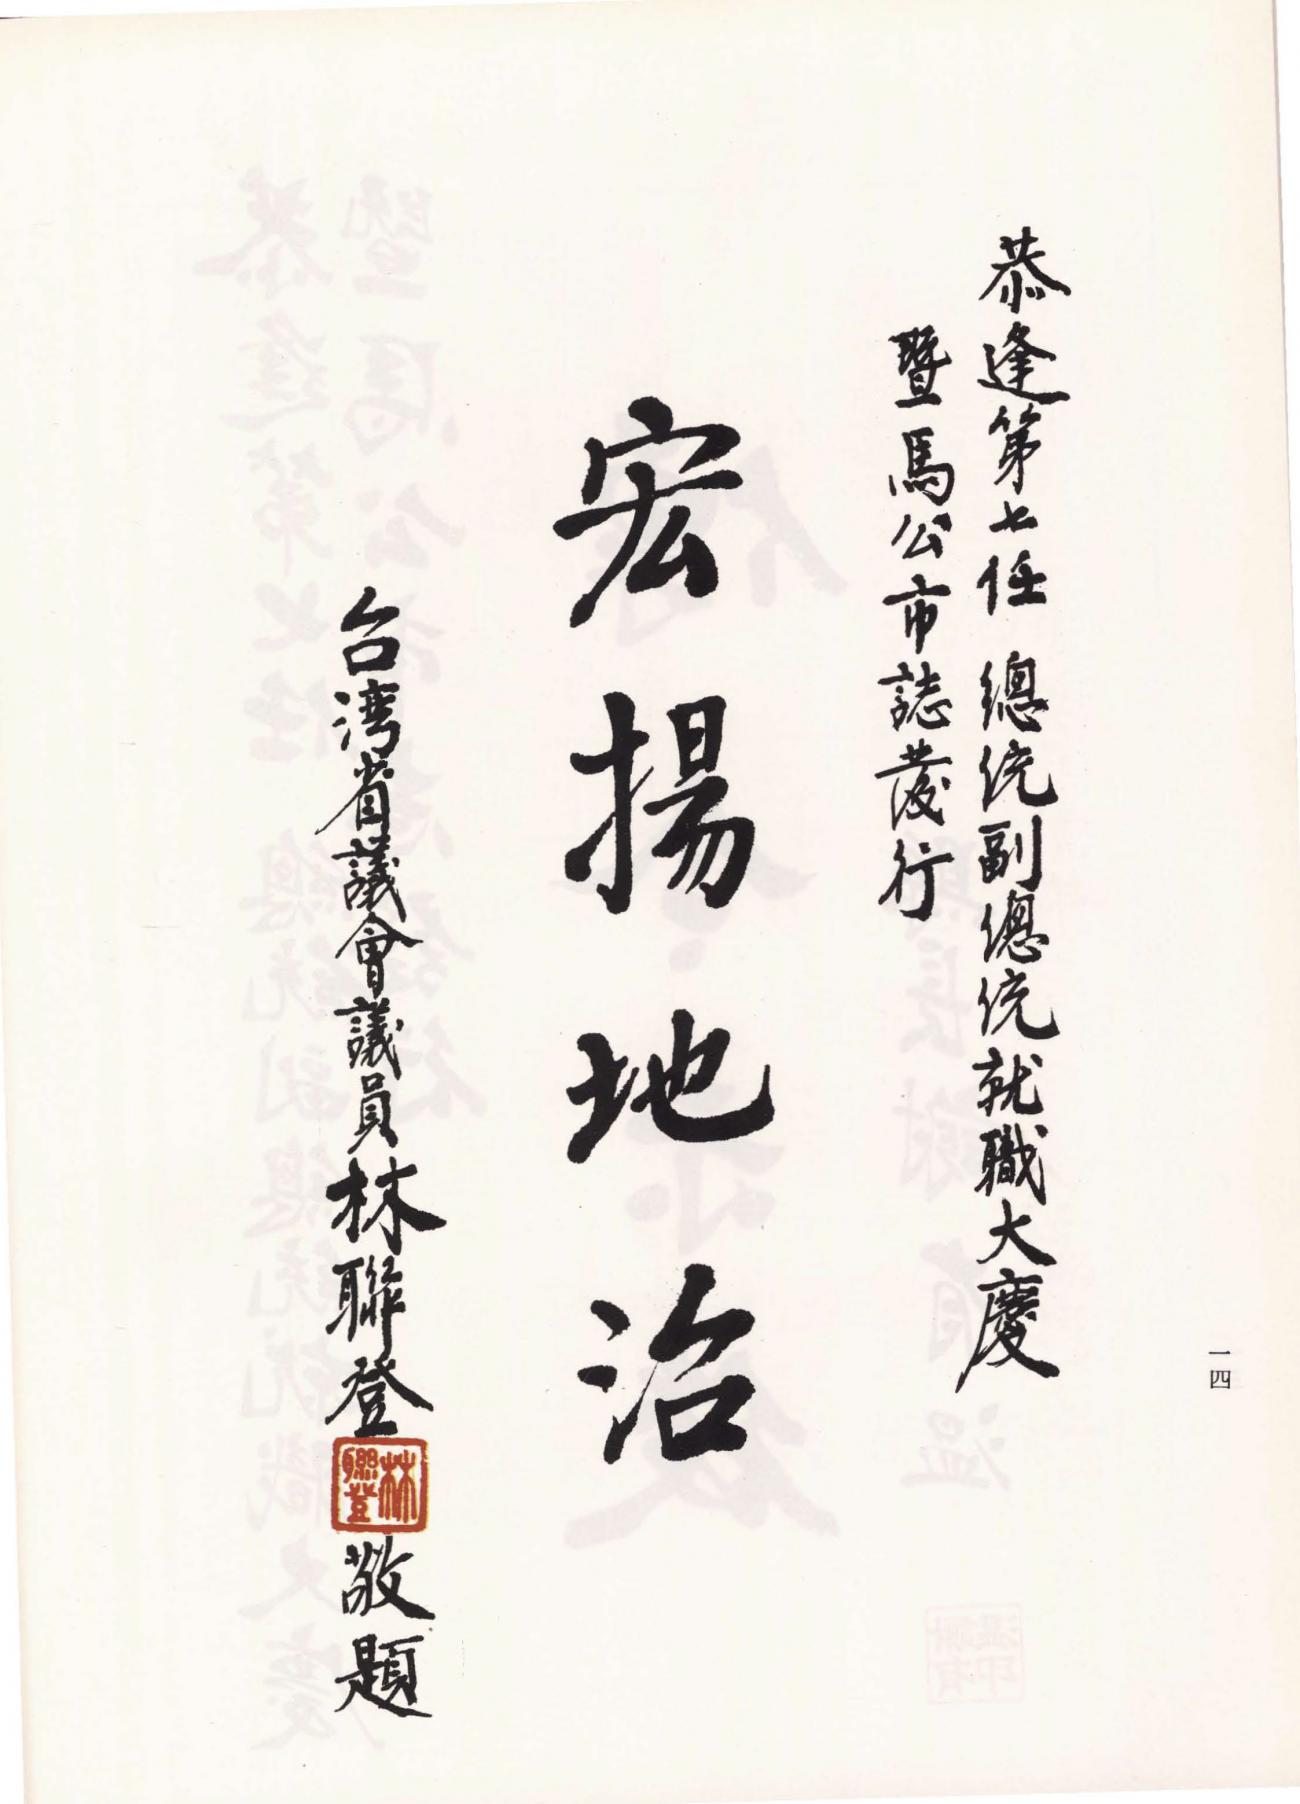 恭逢第七任 總統副總統就職大慶
暨馬公市誌發行
宏揚地治
台湾省議會議員林聯登 敬題
林聯登
一四